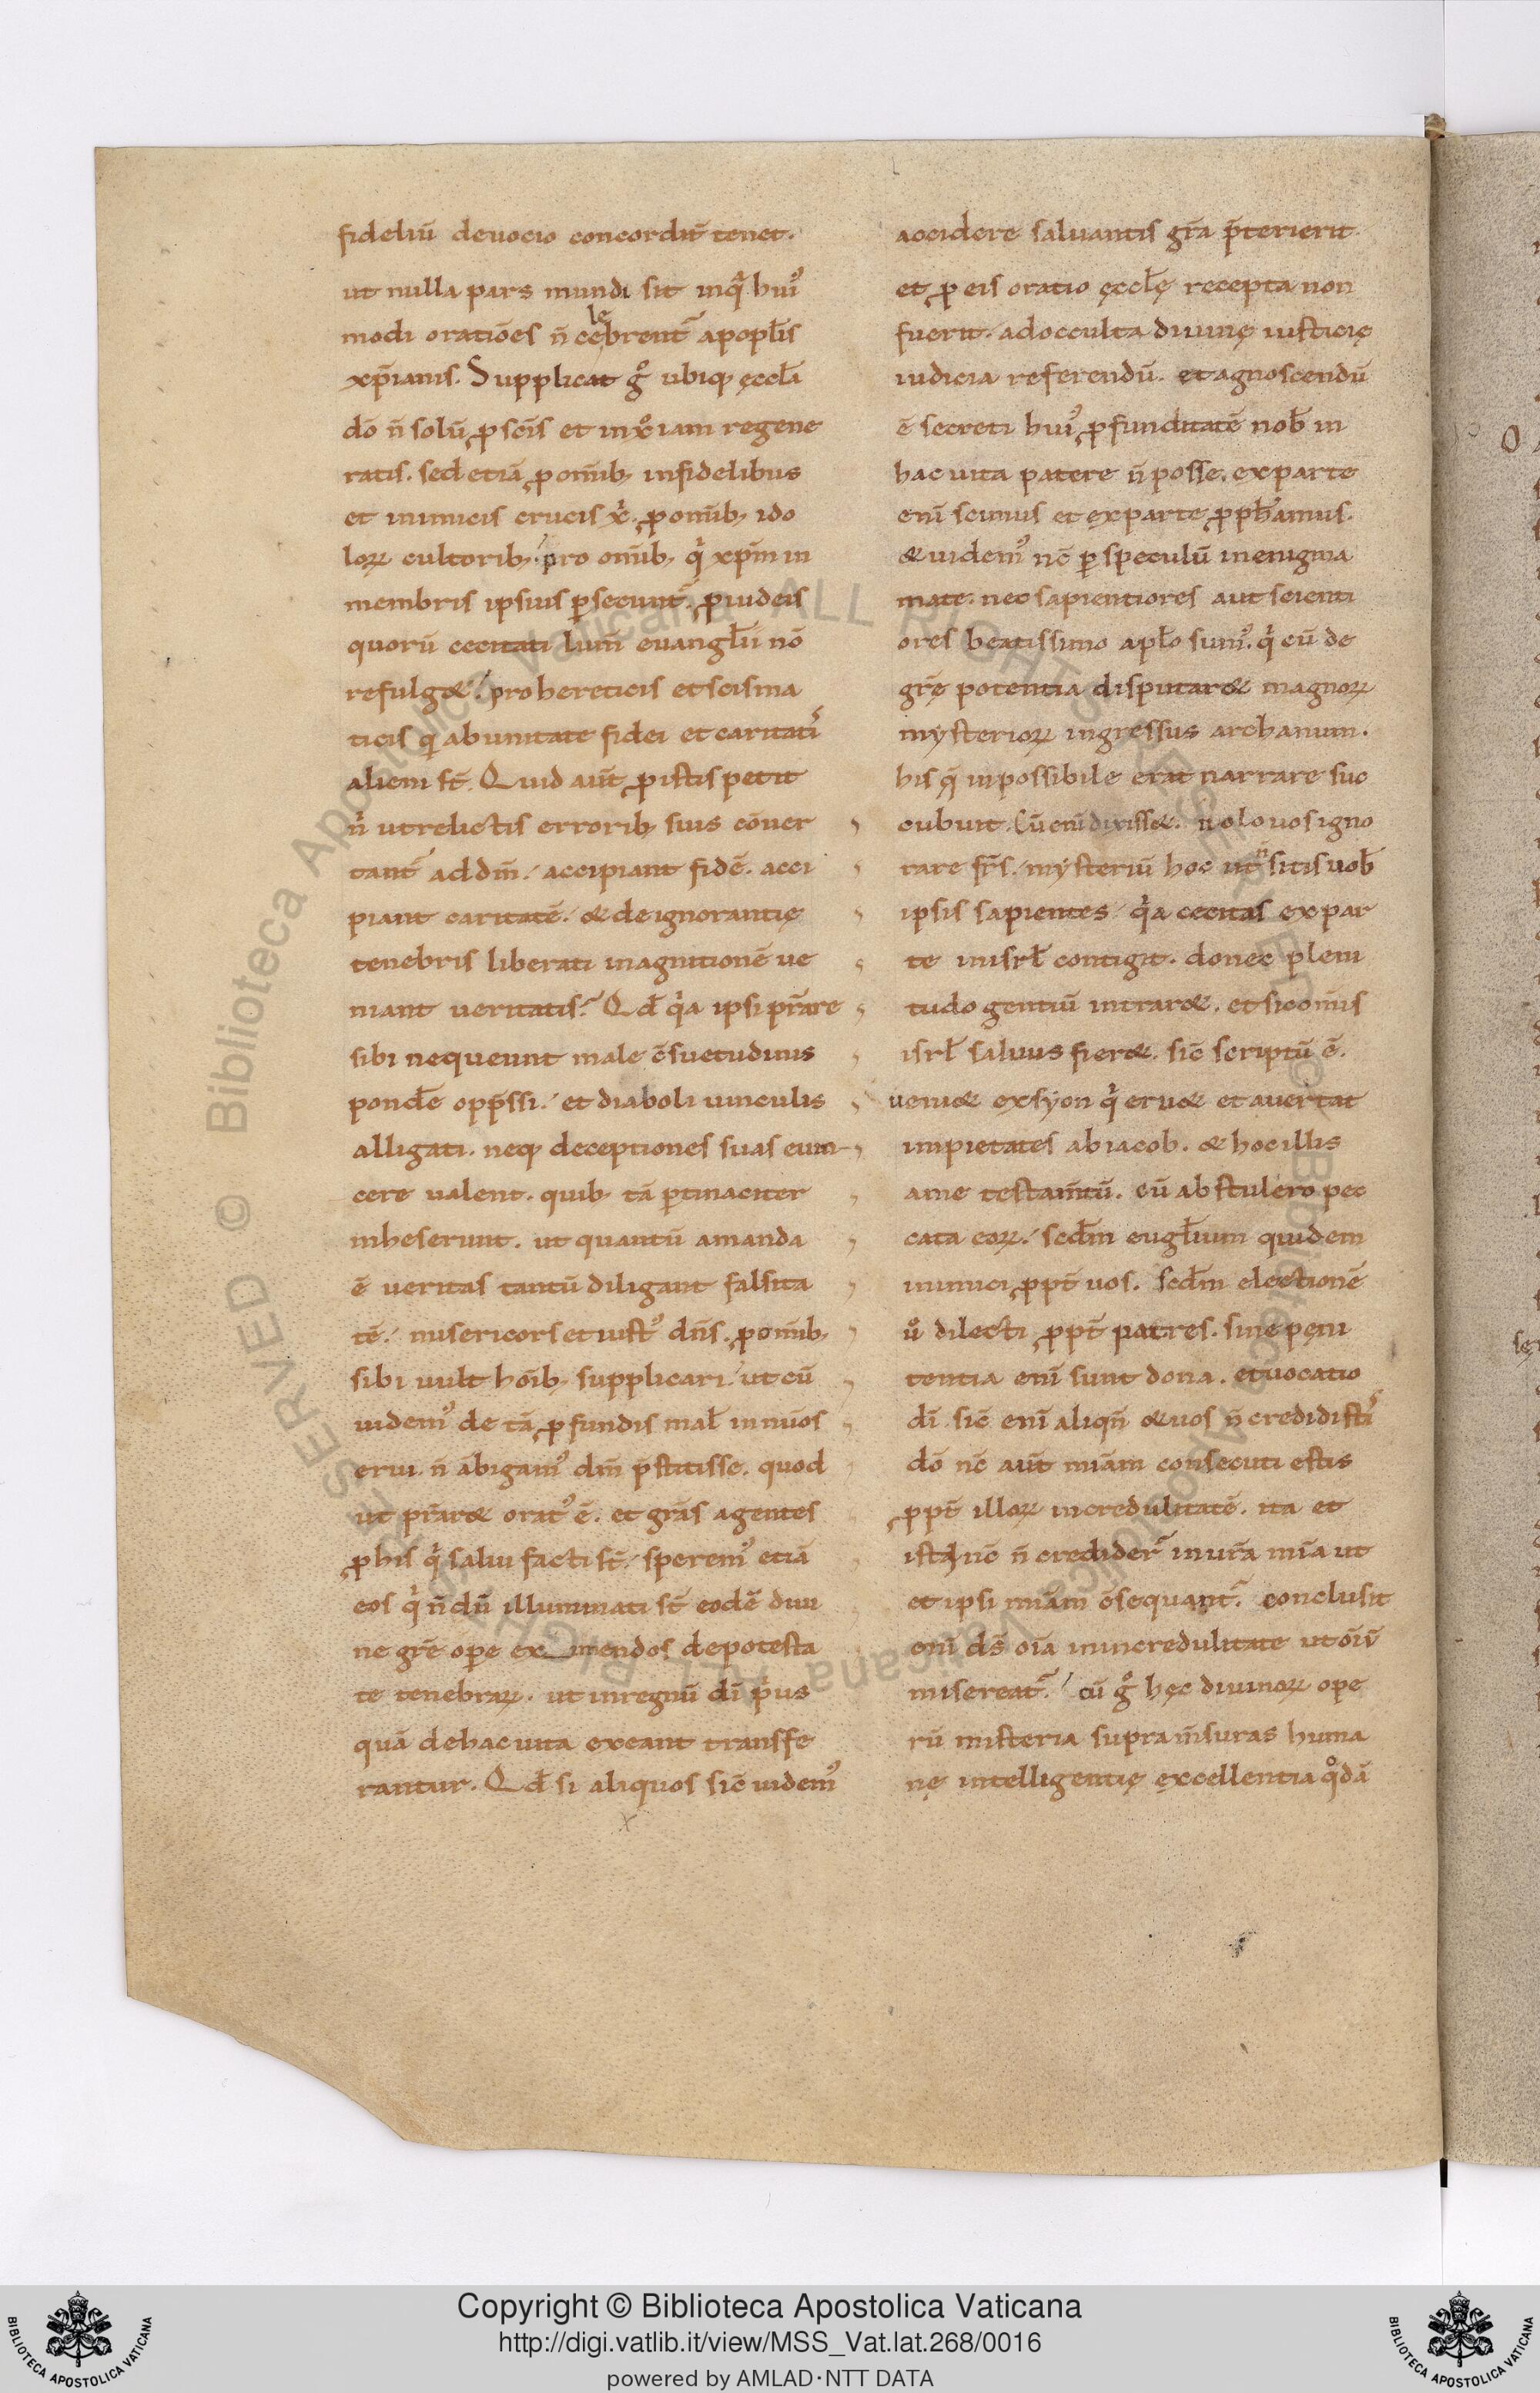 fideliū deuocio concordit̄ tenet.
ut nulla pars mundi sit inq̄ hui᾽
modi oratiōes n̄ celebrent᷑ apopl̄is
xp̄ianis. Supplicat gͦ ubiq; ęccl̄a
dō n̄ solū ꝓ scīs et inxͦ iam regene
ratis. sed etiā ꝓ omīb; infidelibus
et inimicis crucis xͥ. ꝓ omīb; ido
loꝝ cultorib; pro omīb; qͥ xp̄m in
membris ipsius ꝑsecunt᷑. ꝓ iudeis
quorū cecitati lum̄ euangl̄ii nō
refulg&. pro hereticis et scisma
ticis qi ab unitate fidei et caritatis
alieni st̄. Quid aut̄ ꝓ istis petit
nͥ ut relictis errorib; suis cōuer
tant᷑ ad dm̄. accipiant fidē. acci
piant caritatē. & de ignorantię
tenebris liberati in agnitionē ue
niant ueritatis. Qd̄ qͥa ipsi pr̄are
sibi nequeunt male c̄suetudinis
pond̄e opp̄ssi. et diaboli uinculis
alligati. neq; deceptiones suas euin
cere ualent. quib; tā ꝑtinaciter
inheserunt. ut quantū amanda
ē ueritas tantū diligant falsita
tē. misericors et iust᾽ dn̄s. ꝓ omīb;
sibi uult hōib; supplicari. ut cū
uidem᾽ de tā ꝓfundis mal̄ innūos
erui. n̄ ābigam᾽ dm̄ p̄stitisse. quod
ut pr̄ar& orat᾽ ē. et grās agentes
ꝓ his qͥ salui facti st̄. sperem᾽ etiā
eos qͥ n̄dū illuminati st̄ eodē diui
ne grē ope eximendos de potesta
te tenebraꝝ. ut in regnū dī pͥus
quā de hac uita exeant transfe
rantur. Qd̄ si aliquos sic̄ uidem᾽
accidere saluantis grā p̄terierit.
et ꝓ eis oratio ęccl̄ę recepta non
fuerit. ad occulta diuinę iusticię
iudicia referendū. et agnoscendū
ē secreti hui᾽ ꝓfunditatē nob̄ in
hac uita patere n̄ posse. ex parte
enī scimus et ex parte ꝓph̄amus.
& uidem᾽ nc̄ ꝑ speculū in enigma
mate. nec sapientiores aut scienti
ores beatissimo apl̄o sum᾽. qͥ cū de
grę potentia disputar& magnoꝝ
mysterioꝝ ingressus archanum.
his q̄ inpossibile erat narrare suc
cubuit. Cū enī dixiss&. nolo uos igno
rare fr̄s. mysteriū hoc ut n̄ sitis uob̄
ipsis sapientes. qͥa cecitas ex par
te inisrl̄ contigit. donec pleni
tudo gentiū intrar&. et sic omīs
isrl̄ saluus fier&. sic̄ scriptū ē.
ueni& ex syon qͥ eru& et auertat
impietates ab iacob. & hoc illis
a me testam̄tū. cū abstulero pec
cata eoꝝ. scd̄m eugl̄ium quidem
inimici ꝓpt̄ uos. scd̄m electionē
uͦ dilecti ꝓpt̄ patres. sine pęni
tentia enī sunt dona. et uocatio
dī. sic̄ enī aliqn̄ & uos n̄ credidistis
dō nc̄ aut̄ miām consecuti estis
ꝓpt̄ illoꝝ incredulitatē. ita et
isti nc̄ n̄ credider᷑ in ur̄a mīa ut
et ipsi miām c̄sequant᷑. conclusit
enī ds̄ oīa in incredulitate ut oīū
misereat᷑. cū gͦ hęc diuinoꝝ ope
rū misteria supra m̄suras huma
nę intelligentię excellentia qͦdā
Copyright © Biblioteca Apostolica Vaticana
http://digi.vatlib.it/view/MSS_Vat.lat.268/0016
powered by AMLAD·NTT DATA